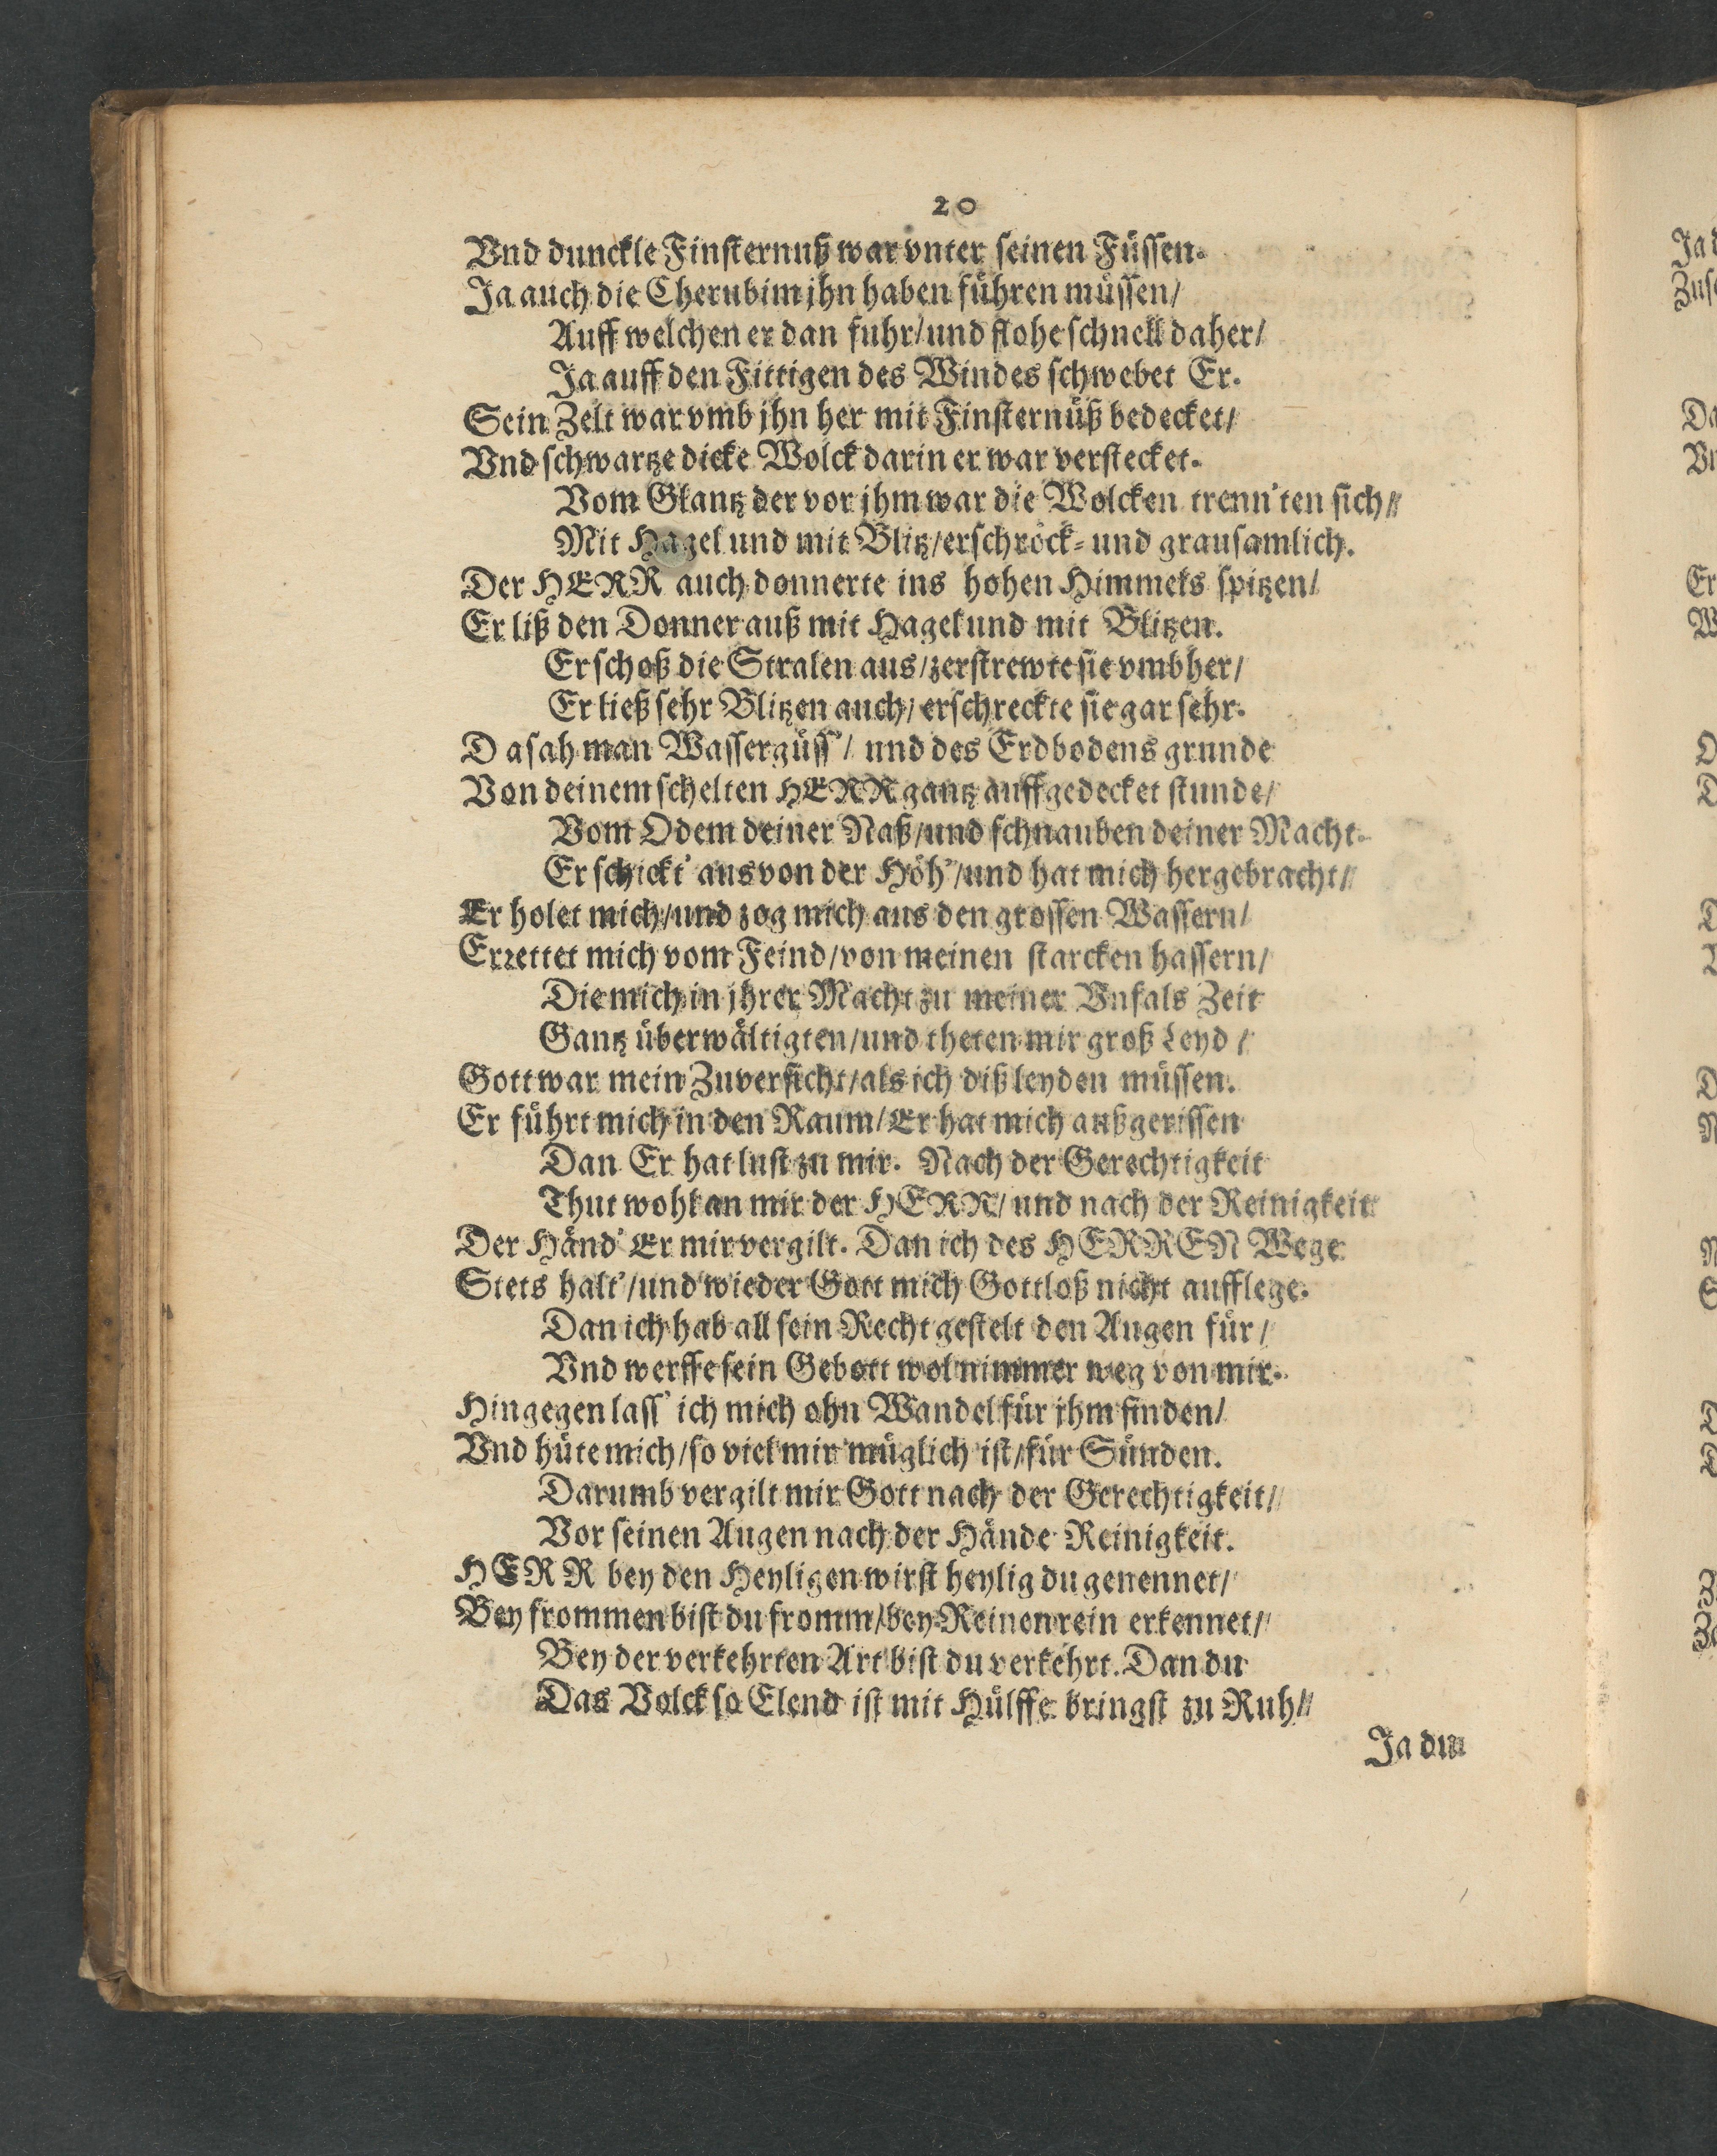 20
Vnd dunckle Finsternuß war vnter seinen Füssen.
Ja auch die Cherubim jhn haben führen müssen/
Auff welchen er dan fuhr/und flohe schnell daher/
Ja auff den Fittigen des Windes schwebet Er.
Sein Zelt war vmb jhn her mit Finsternüß bedecket/
Vnd schwartze dicke Wolck darin er war verstecket.
Vom Glantz der vor jhm war die Wolcken trenn'ten sich/
Mit Hagel und mit Blitz/erschröck- und grausamlich.
Der HERR auch donnerte ins hohen Himmels spitzen/
Er liß den Donner auß mit Hagel und mit Blitzen.
Er schoß die Stralen aus/zerstrewte sie vmbher/
Er ließ sehr Blitzen auch/erschreckte sie gar sehr.
Da sah man Wassergüss'/ und des Erdbodens grunde
Von deinem schelten HERR gantz auffgedecket stunde/
Vom Odem deiner Naß/und schnauben deiner Macht.
Er schickt' aus von der Höh'/und hat mich hergebracht/
Er holet mich/und zog mich aus den grossen Wassern/
Errettet mich vom Feind/von meinen starcken hassern/
Die mich in jhrer Macht zu meiner Vnfals Zeit
Gantz überwältigten/und theten mir groß Leyd/
Gott war mein Zuversicht/als ich diß leyden müssen.
Er führt mich in den Raum/Er hat mich außgerissen
Dan Er hat lust zu mir. Nach der Gerechtigkeit
Thut wohl an mir der HERR/ und nach der Reinigkeit
Der Händ' Er mir vergilt. Dan ich des HERREN Wege
Stets halt'/und wieder Gott mich Gottloß nicht aufflege.
Dan ich hab all sein Recht gestelt den Augen für/
Vnd werffe sein Gebott wol nimmer weg von mir.
Hingegen lass' ich mich ohn Wandel für jhm finden/
Vnd hüte mich/so viel mir müglich ist/für Sünden.
Darumb vergilt mir Gott nach der Gerechtigkeit/
Vor seinen Augen nach der Hände Reinigkeit.
HERR bey den Heyligen wirst heylig du genennet/
Bey frommen bist du fromm/bey Reinen rein erkennet/
Bey der verkehrten Art bist du verkehrt. Dan du
Das Volck so Elend ist mit Hülffe bringst zu Ruh/
Ja du